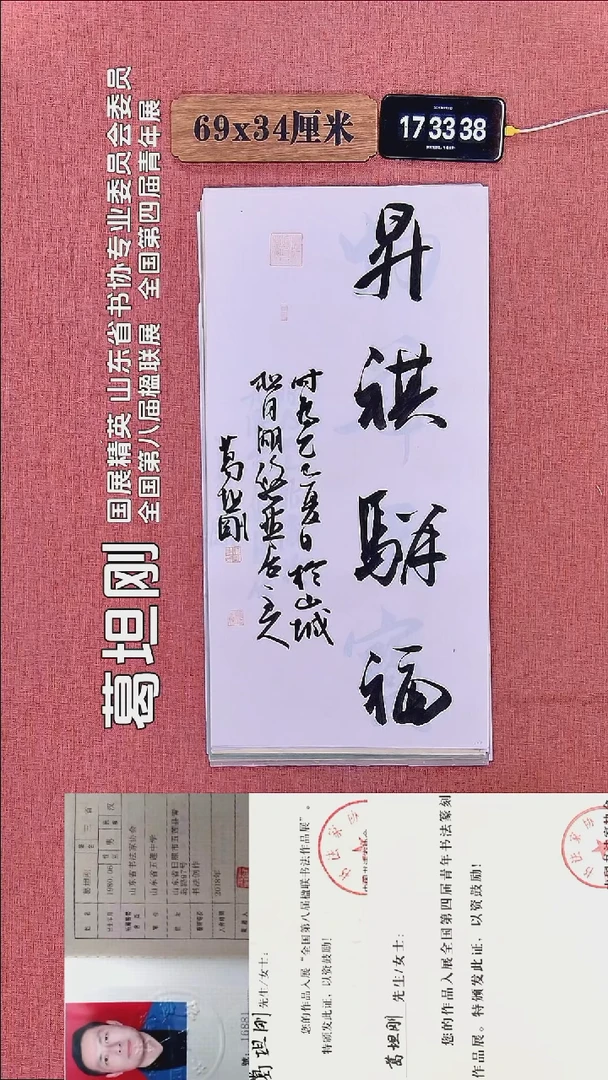 69x34厘米
17 33 38
国展精英 山东省书协专业委员会委员
全国第八届楹联展 全国第四届青年展
葛坦刚
昇祺駢福
时在乙巳夏日於山城
松月湖
葛坦刚
山东省书法家协会
山东省五莲中学
书法创作
2018年
16881
葛坦刚 先生/女士：
您的作品入展“全国第八届楹联书法作品展”。
特颁发此证，以资鼓励！
葛坦刚 先生/女士：
您的作品入展全国第四届青年书法篆刻
作品展。特颁发此证，以资鼓励！